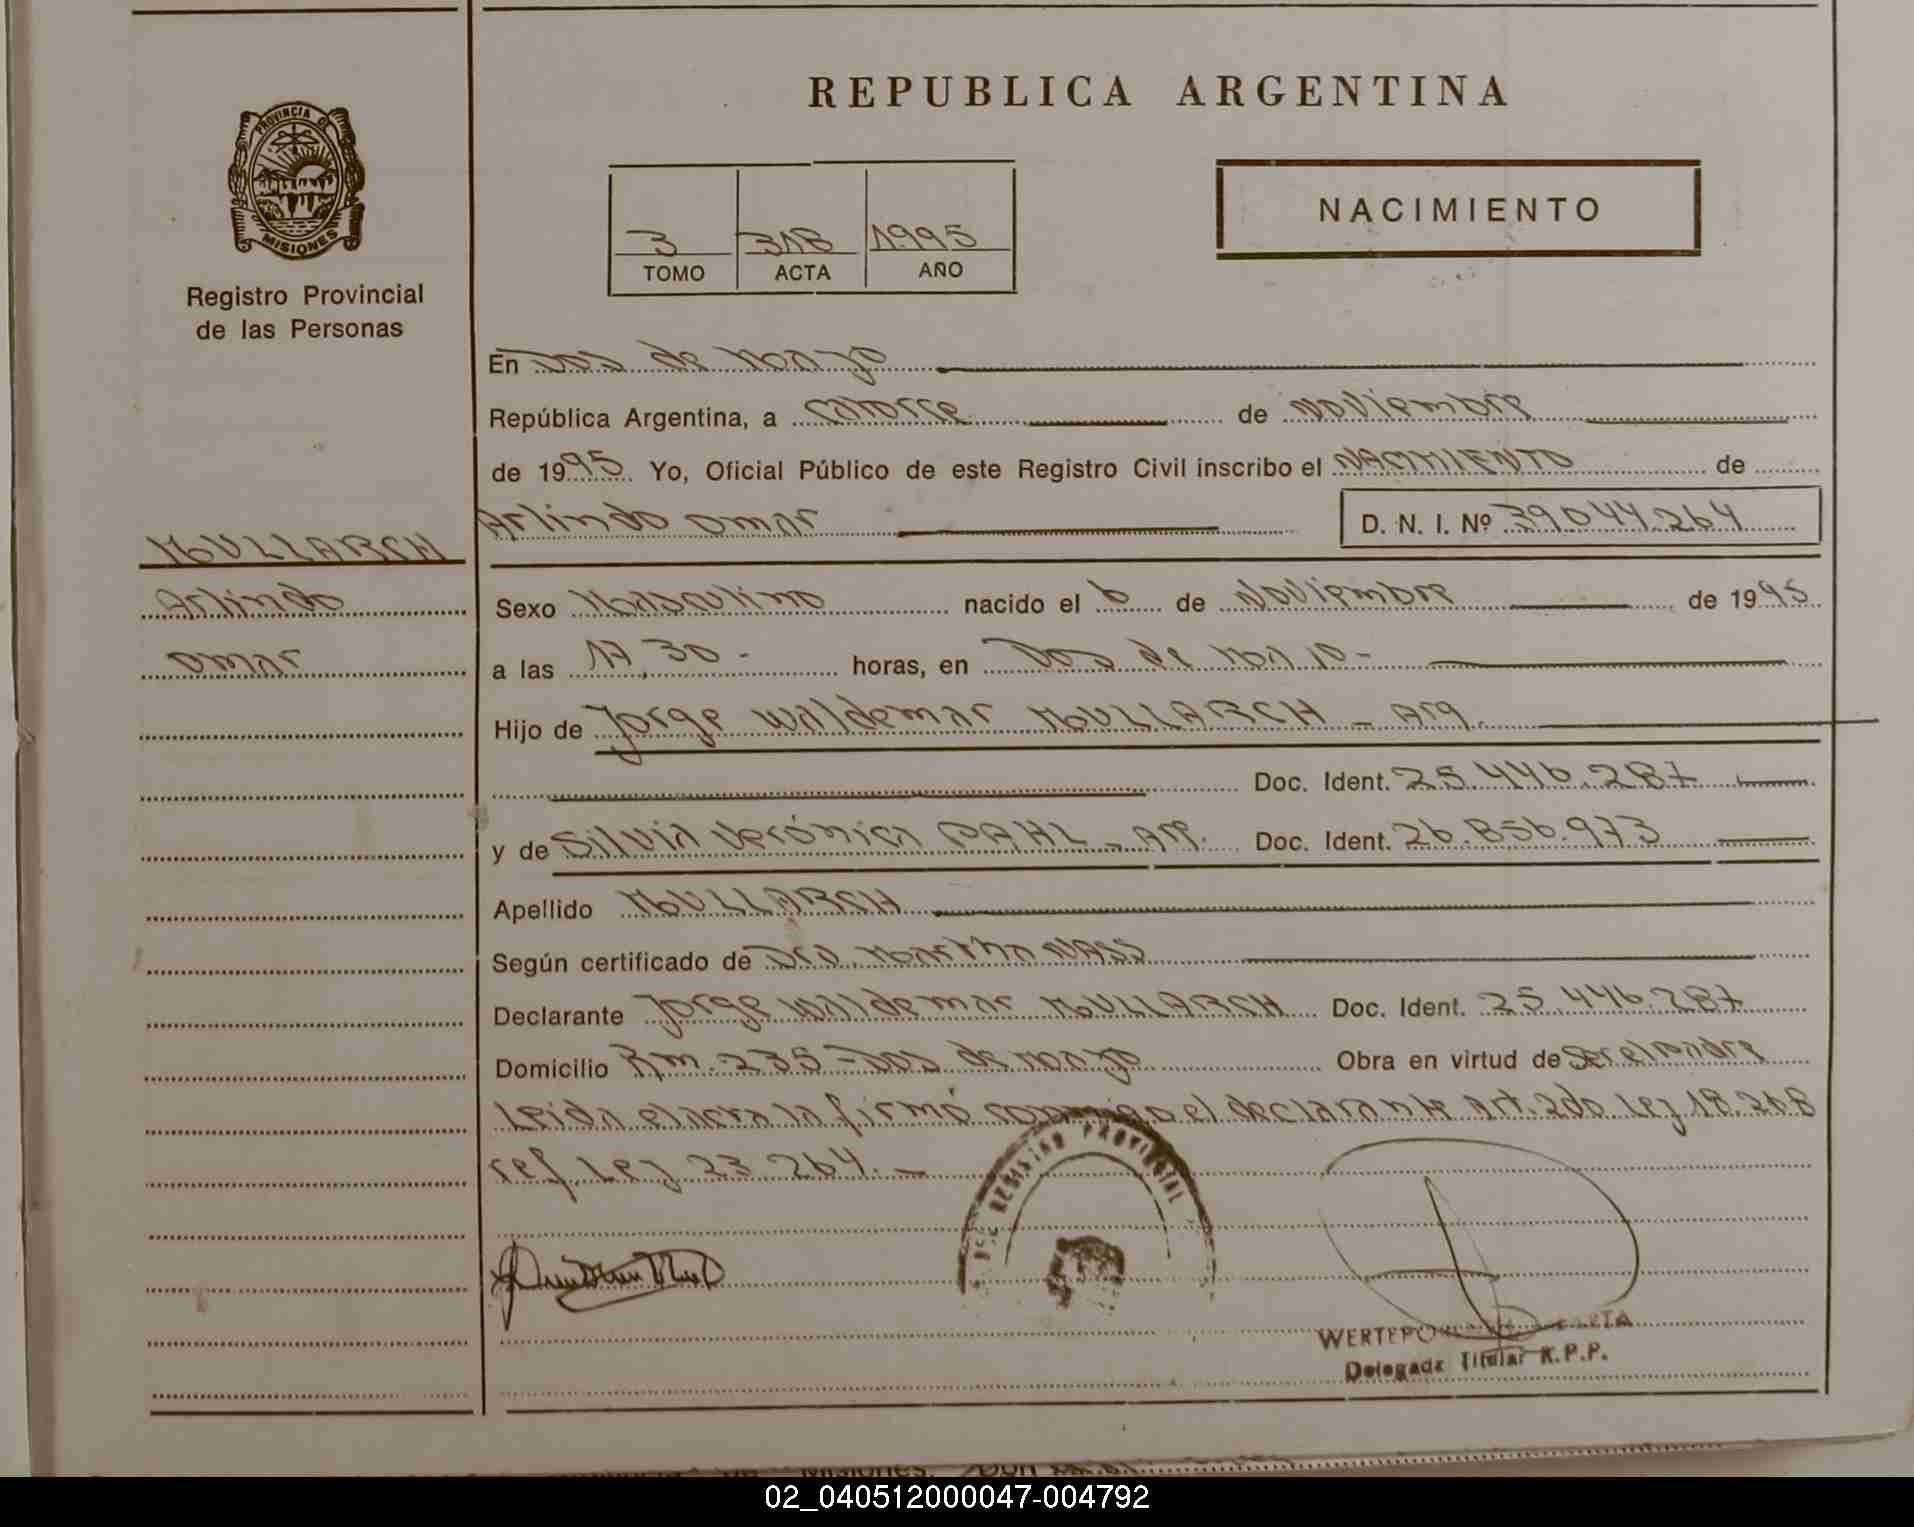 REPUBLICA ARGENTINA
PROVINCIA DE
MISIONES
Registro Provincial
de las Personas
NACIMIENTO
3 318 1995
TOMO ACTA AÑO
En Dos de Mayo
República Argentina, a catorce de Noviembre
de 1995 Yo, Oficial Público de este Registro Civil inscribo el NACIMIENTO de
Arlindo Omar D. N. I. Nº 39044.264
MULLARCH
Arlindo
Omar
Sexo Masculino nacido el 6 de Noviembre de 1995
a las 17,30- horas, en Dos de Mayo-
Hijo de Jorge Waldemar MULLARCH - Arg.
Doc. Ident. 25.446.287
y de Silvia Verónica PAHL - Arg. Doc. Ident. 26.856.973
Apellido MULLARCH
Según certificado de Dra. Martha NASS
Declarante Jorge Waldemar MULLARCH Doc. Ident. 25.446.287
Domicilio Km. 235 - Dos de Mayo Obra en virtud de Ser el padre
Leida el acta la firmó conmigo el declarante Art. 2do Ley 18.248
ref. Ley 23.264.-
REGISTRO PROVINCIAL
Delegada Titular R.P.P.
02_040512000047-004792